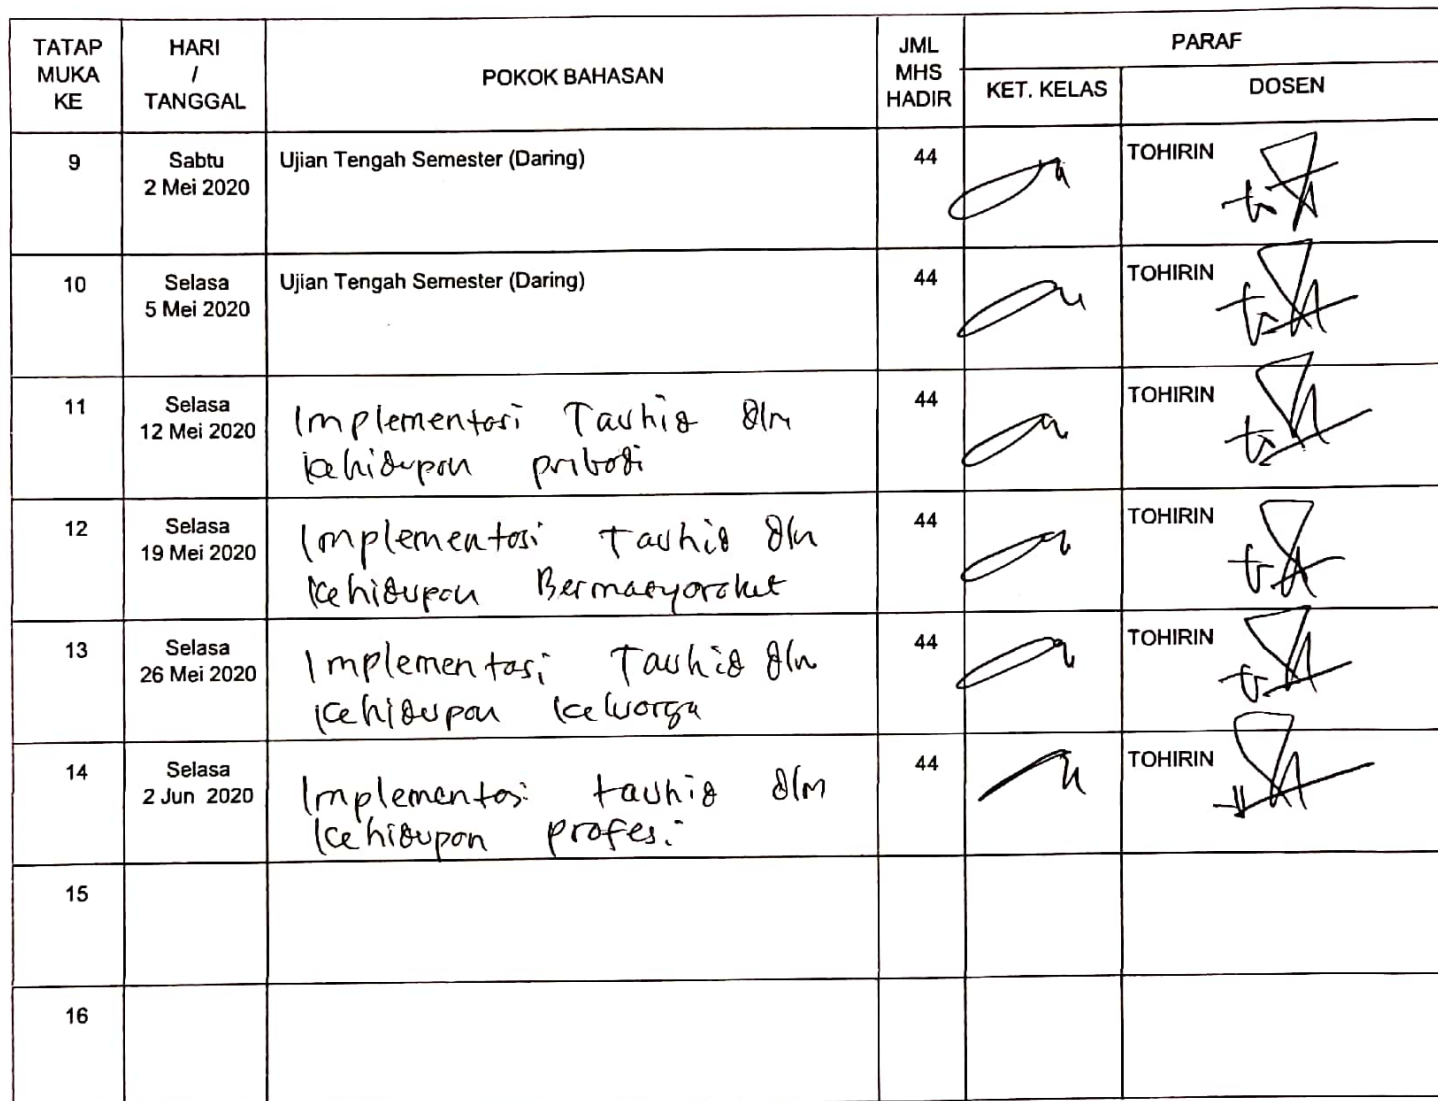 TATAP MUKA KE
HARI / TANGGAL
POKOK BAHASAN
JML MHS HADIR
PARAF
KET. KELAS
DOSEN
9
Sabtu
2 Mei 2020
Ujian Tengah Semester (Daring)
44
TOHIRIN
10
Selasa
5 Mei 2020
Ujian Tengah Semester (Daring)
44
TOHIRIN
11
Selasa
12 Mei 2020
Implementasi Tauhid dlm
kehidupan pribadi
44
TOHIRIN
12
Selasa
19 Mei 2020
Implementasi Tauhid dlm
kehidupan Bermasyarakat
44
TOHIRIN
13
Selasa
26 Mei 2020
Implementasi Tauhid dlm
kehidupan keluarga
44
TOHIRIN
14
Selasa
2 Jun 2020
Implementasi tauhid dlm
kehidupan profesi
44
TOHIRIN
15
16